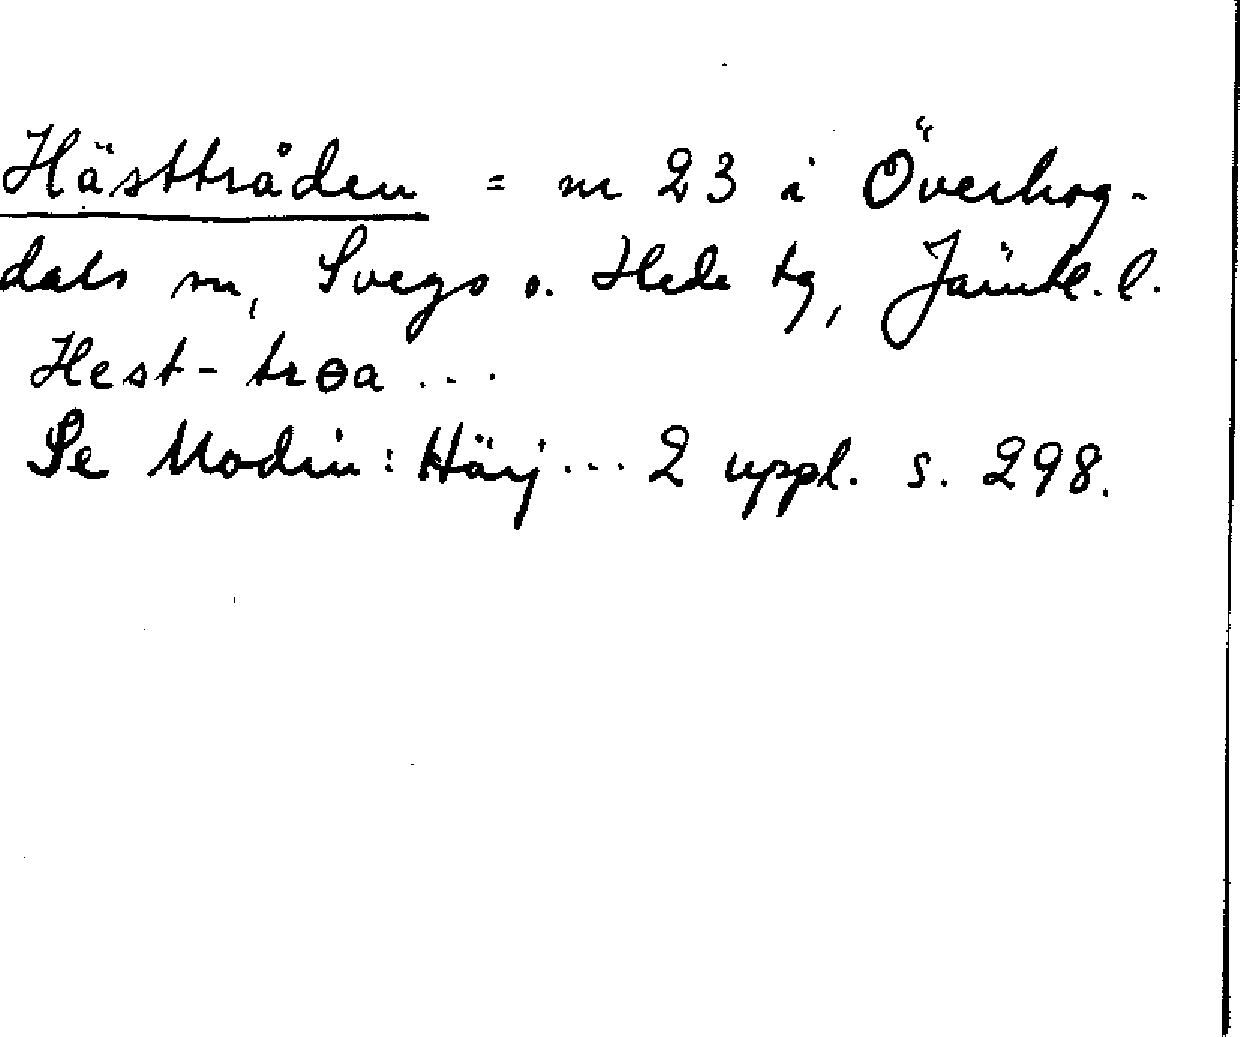 Hästtråden = nr 23 i Överhog-
dals sn, Svegs o. Hede tg, Jämtl. l.
Hest-trɵa ...
Se Modin: Härj... 2 uppl. s. 298.